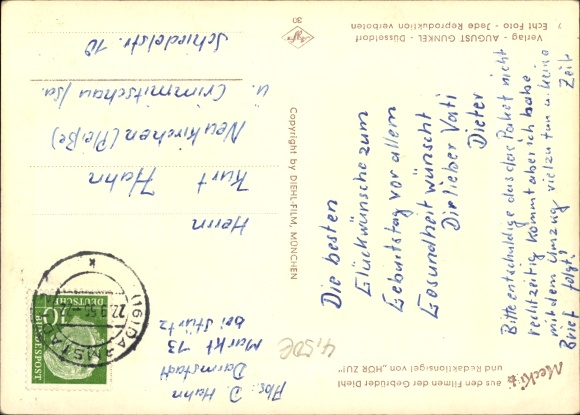 Mecki
aus den Filmen der Gebrüder Diehl
und Redaktionsigel von „HÖR ZU!“
Abs.: D. Hahn
Darmstadt
Markt 13
bei Stürtz
4,50€
(16) DARMSTADT
22.9.56
k
DEUTSCHE
BUNDESPOST
10
Die besten
Glückwünsche zum
Geburtstag vor allem
Gesundheit wünscht
Dir lieber Vati
Dieter
Bitte entschuldige das das Paket nicht
rechtzeitig kommt aber ich habe
mit dem Umzug viel zu tun u. keine
Zeit
Brief folgt!
Herrn
Kurt Hahn
Neukirchen (Pleiße)
ü. Crimmitschau/Sa.
Schiedelstr. 10
Copyright by DIEHL-FILM, MÜNCHEN
Agfa
30
Verlag - AUGUST GUNKEL - Düsseldorf
7 Echt Foto - Jede Reproduktion verboten